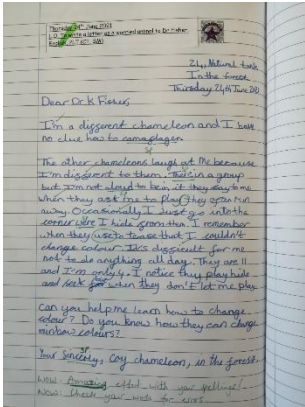 Thursday 24th June 2021
L.O. To write a letter as a worried animal to Dr Fisher.
24, Natural
In the forest
Thursday 24th June
Dear Dr K Fisher,
I'm a different chameleon and I have
no clue how to camaplagen.
The other chameleons laugh at me because
I'm different to them. in a group
but I'm not aloud to be in it they say to me.
When they ask me to play they often run
away. Occasionally I Just go into the
corner were I hide from them. I remember
when they use to tease that I couldn't
change colour. It's difficult for me
not to do anything all day. They are 11
and I'm only 4. I notice they play hide
and seek for when they don't let me play.
Can you help me learn how to change
colour? Do you know how they can change
rainbow colours?
Your Sincerly, Coy chameleon, in the forest.
Wow! Amazing effort with your spellings!
Now: Check your work for errors.